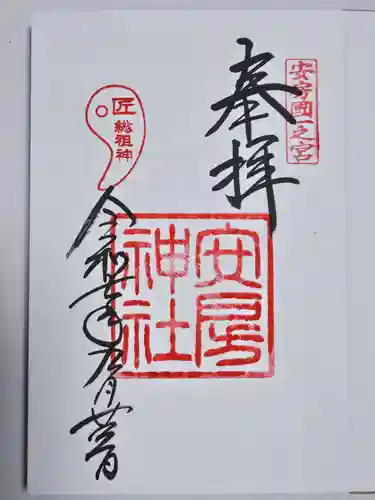 安房國一之宮
奉拝
安房
神社
匠
総祖神
令和七年五月廿二日